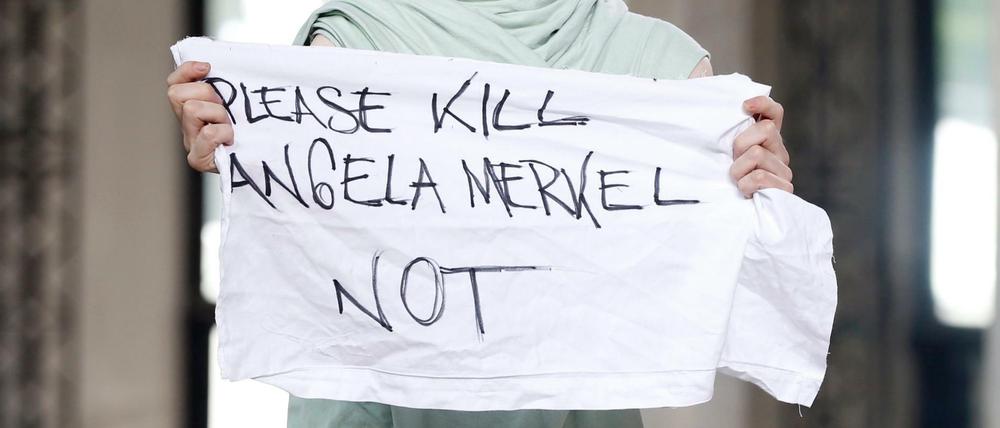 PLEASE KILL
ANGELA MERKEL
NOT